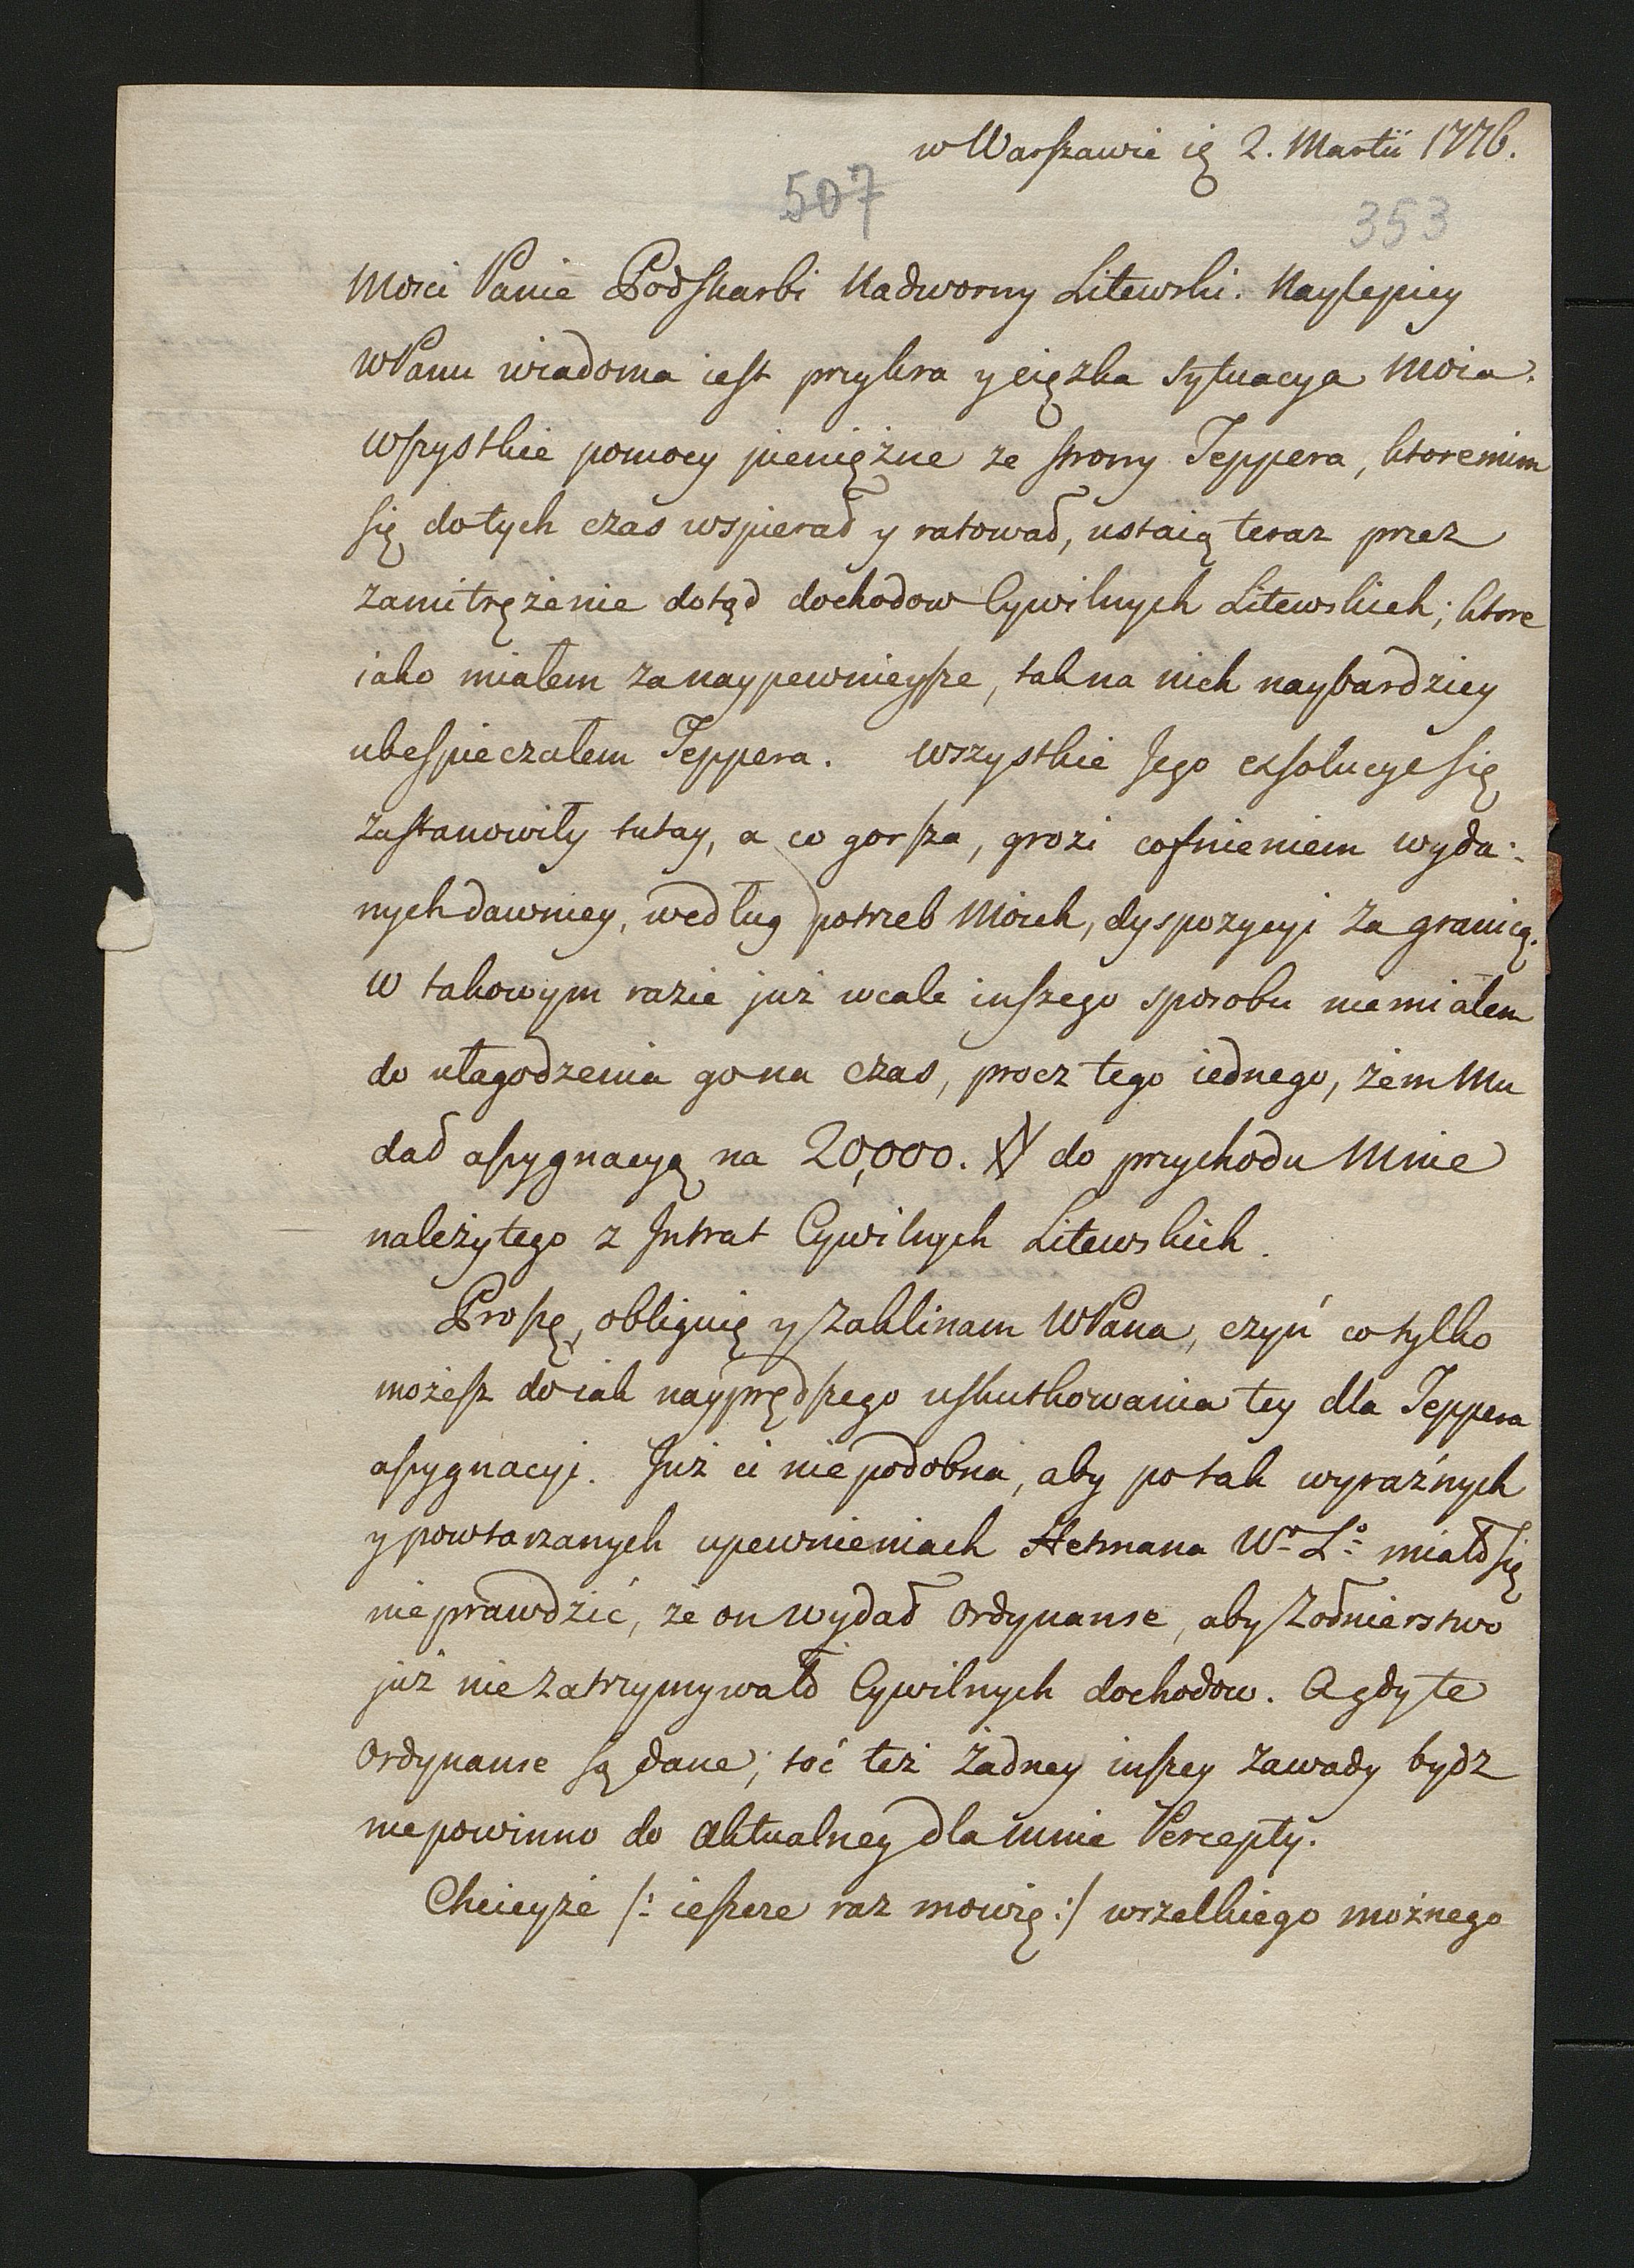 w Warszawie ię 2. Martii 1776.
507
353
Mosci Panie Podskarbi Nadworny Litewski. Naylepiey
WPanu wiadoma iest przykra y cięzka sytuacya Moia.
Wszystkie pomocy pieniężne ze strony Teppera, ktoremim
się dotych czas wspierał y ratował, ustaią teraz przez
zamitrężenie dotąd dochodow Cywilnych Litewskich; ktore
iako miałem za naypewnieysze, tak na nich naybardziey
ubespieczałem Teppera. Wszystkie Jego exsolucye się
zastanowiły tutay, a co gorsza, grozi cofnieniem wyda:
nych dawniey, według potrzeb Moich, dyspozycyi za granicą.
W takowym razie już wcale inszego sposobu nie miałem
do ułagodzenia go na czas, procz tego iednego, żem Mu
dał assygnacyą na 20,000. # do przychodu Mnie
należytego z Intrat Cywilnych Litewskich.
Proszę, obliguię y zaklinam WPana, czyń co tylko
możesz do iak nayprędszego uskutkowania tey dla Teppera
assygnacyi. Już ci nie podobna, aby po tak wyraźnych
y powtarzanych upewnieniach Hetmana Wo Lo miało się
nie prawdzić, że on wydał Ordynanse, aby Żołnierstwo
już nie zatrzymywało Cywilnych dochodow. A gdy te
Ordynanse są dane; toć też żadney inszey zawady bydz
nie powinno do aktualney dla mnie Percepty.
Chcieyże /: ieszcze raz mowię :/ wszelkiego możnego